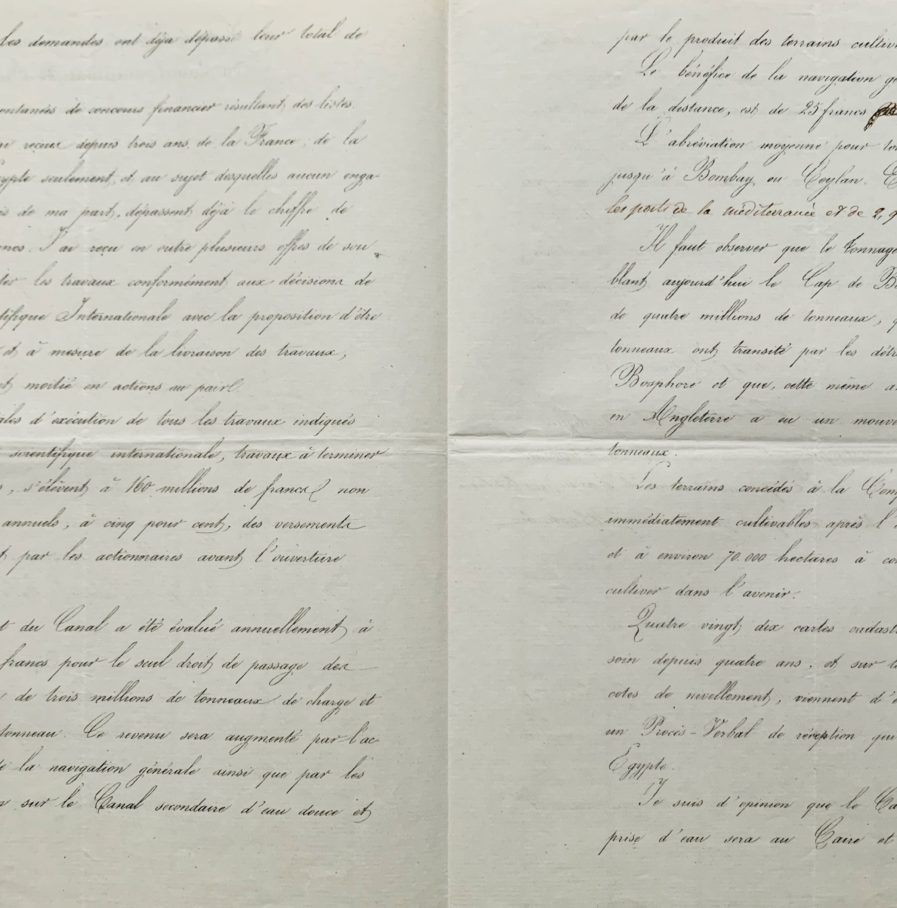 Les demandes ont déja dépassé leur total de
ontanées de concours financier résultant des listes
reçues depuis trois ans, de la France, de la
gypte seulement, et au sujet desquelles aucun enga
is de ma part, dépassent déjà le chiffre de
J'ai reçu en outre plusieurs offres de sou
ter les travaux conformément aux décisions de
tifique Internationale avec la proposition d'être
et à mesure de la livraison des travaux,
t, moitié en actions au pair.
ales d'exécution de tous les travaux indiqués
scientifique internationale, travaux à terminer
s, s'élèvent à 160 millions de francs, non
annuels, à cinq pour cent, des versements
t par les actionnaires avant l'ouverture
t du Canal a été évalué annuellement à
francs pour le seul droit de passage des
de trois millions de tonneaux de charge et
tonneau. Ce revenu sera augmenté par l'ac
é la navigation générale ainsi que par les
n sur le Canal secondaire d'eau douce et
par le produit des terrains cultiv
Le bénéfice de la navigation gé
de la distance, est de 25 francs
L'abréviation moyenne pour to
jusqu'à Bombay ou Ceylan. E
les ports de la méditerranée et de 2,9
Il faut observer que le tonnage
blant aujourd'hui le Cap de B
de quatre millions de tonneaux, q
tonneaux ont transité par les détr
Bosphore et que, cette même a
en Angleterre a eu un mouve
tonneaux.
Les terrains concédés à la Comp
immédiatement cultivables après l'
et à environ 70.000 hectares à co
cultiver dans l'avenir.
Quatre vingt dix cartes cadast
soin depuis quatre ans, et sur l
cotes de nivellement, viennent d'ê
un Procès-Verbal de réception qu
Egypte.
Je suis d'opinion que le Ca
prise d'eau sera au Caire et